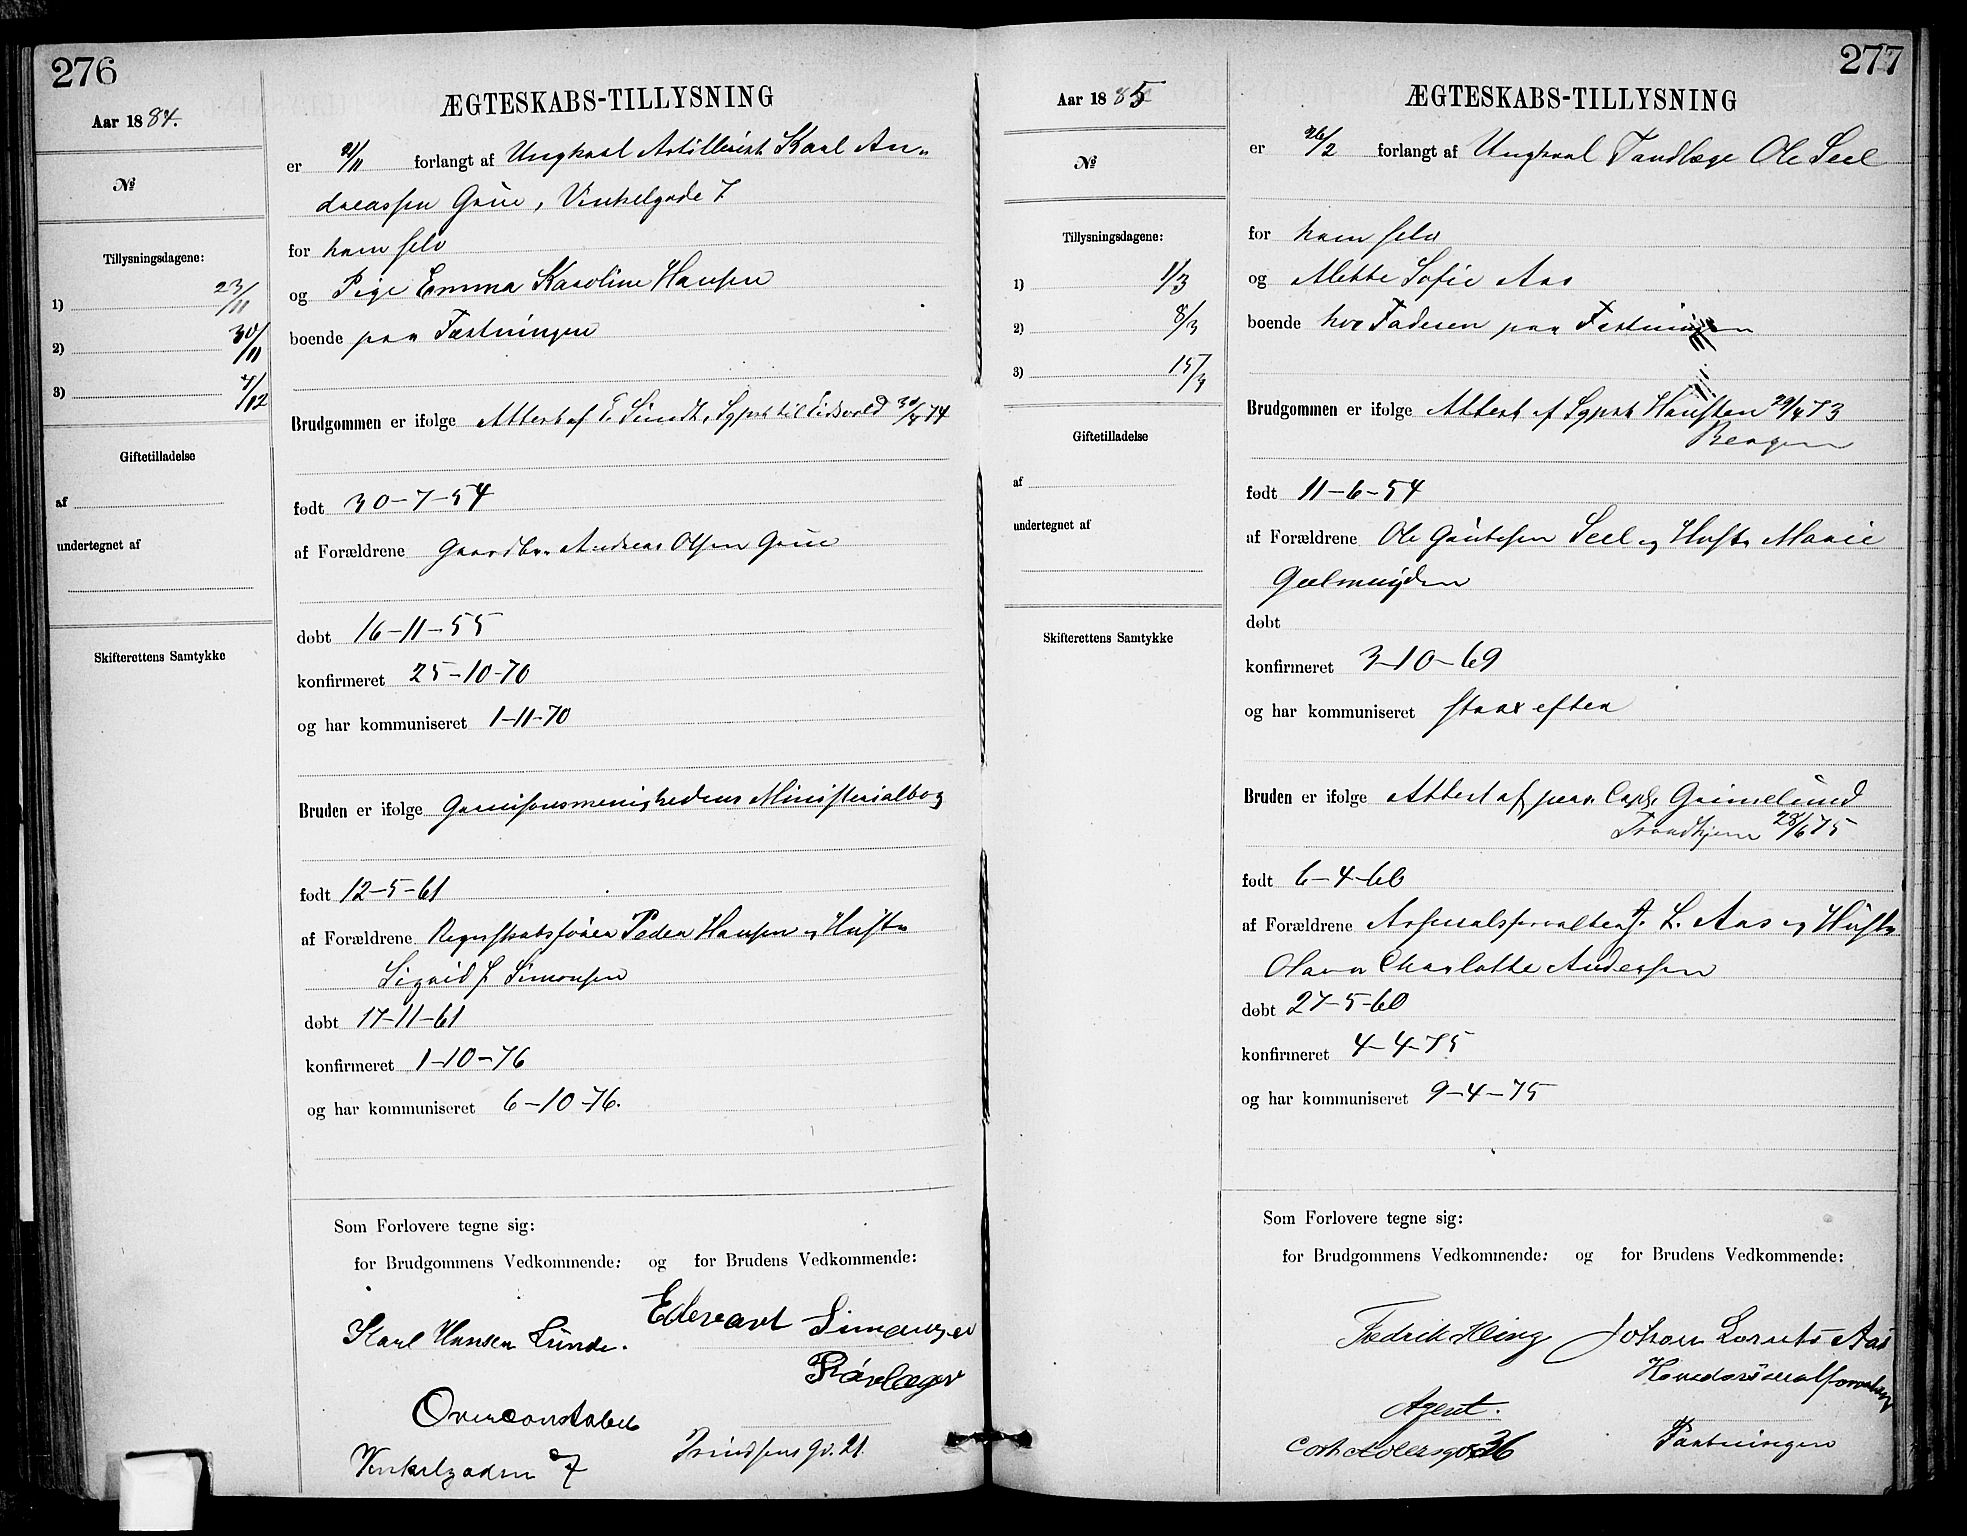 276
Aar 1884.
№
Tillysningsdagene:
1) 23/11
2) 30/11
3) 7/12
Giftetilladelse
af
undertegnet af
Skifterettens Samtykke
ÆGTESKABS-TILLYSNING
er 21/11 forlangt af Ungkarl Artillerist Karl An-
dreassen Grue, Vinkelgade 7
for ham selv
og Pige Emma Karoline Hansen
boende paa Fæstningen
Brudgommen er ifølge Attest af Sundt, Sgpr til Eidsvold 30/4 74
født 30-7-54
af Forældrene Gaardbr. Andreas Olsen Grue
døbt 16-11-55
konfirmeret 25-10-70
og har kommuniseret 1-11-70
Bruden er ifølge Garnisonsmenighedens Ministerialbog
født 12-5-61
af Forældrene Regnskabsfører Peder Hansen og Hustr
Sigrid Simonsen
døbt 17-11-61
konfirmeret 1-10-76
og har kommuniseret 6-10-76.
Som Forlovere tegne sig:
for Brudgommens Vedkommende: og for Brudens Vedkommende:
Karl Hansen Lunde.
Edevart Simensen
Rørlæger
Overconstabel
Vinkelgaden 7
gd. 21.
277
Aar 1885
№
Tillysningsdagene:
1) 1/3
2) 8/3
3) 15/3
Giftetilladelse
af
undertegnet af
Skifterettens Samtykke
ÆGTESKABS-TILLYSNING
er 26/2 forlangt af Ungkarl Tandlæge Ole Seel
for ham selv
og Mette Sofie Aas
boende hos Faderen paa Fæstningen
Brudgommen er ifølge Attest af Sgpr Hansten 29/4 73
Bergen
født 11-6-54
af Forældrene Ole Gautesen Seel og Hustr Marie
Geelmuyden
døbt
konfirmeret 3-10-69
og har kommuniseret strax efter
Bruden er ifølge Attest af pers. Capl. Grimelund
Trondhjem 28/6 75
født 6-4-60
af Forældrene Arsenalsforvalter J. L. Aas og Hustr
Olava Charlotte Andersen
døbt 27-5-60
konfirmeret 4-4-75
og har kommuniseret 9-4-75
Som Forlovere tegne sig:
for Brudgommens Vedkommende: og for Brudens Vedkommende:
Fredrik Heing Johan Lornts Aas
Hovedarsenalforvalter
Agent.
Cort Adlersgd 36
Fæstningen